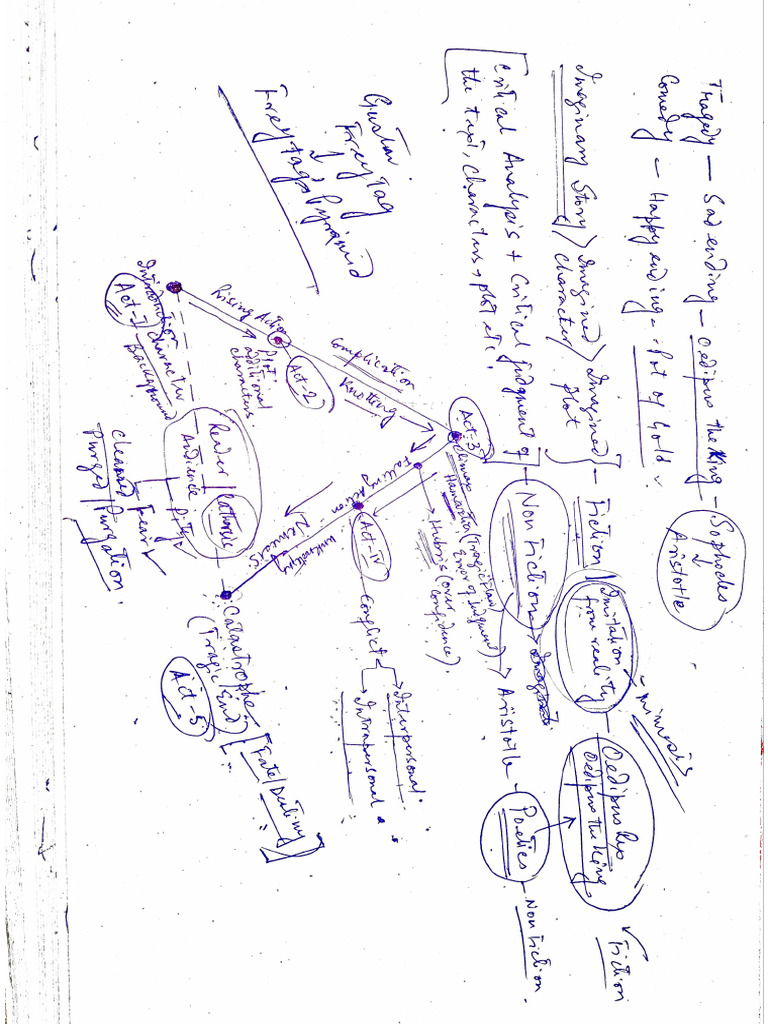 Tragedy – Sad ending – Oedipus the King – Sophocles
↓
Aristotle
Comedy – Happy ending – Pot of Gold
Imaginary Story / Imagined character / Imagined Plot } – Fiction / Imitation from reality – mimesis
Oedipus Rex
Oedipus the King
Fiction
[Critical Analysis + Critical judgment of
the text, characters, plot etc.] – Non Fiction
→ Aristotle – Poetics – Non Fiction.
Gustav
Freytag
↓
Freytag's Pyramid
Act-3
Climax
Hamartia (Tragic flaw
Error of Judgment)
→ Hubris (over
confidence).
Complication
Knotting
Act-2
Rising Action
Plot
additional
characters.
Introduction character
Act-I Background
Falling Action
Act-IV – Conflict
→ Interpersonal.
→ Intrapersonal
unknotting
Reader / Catharsis
Audience – Pity
Fear
Cleansed
Purged / Purgation.
Catastrophe
(Tragic End)
Act-5
[Fate/Destiny]